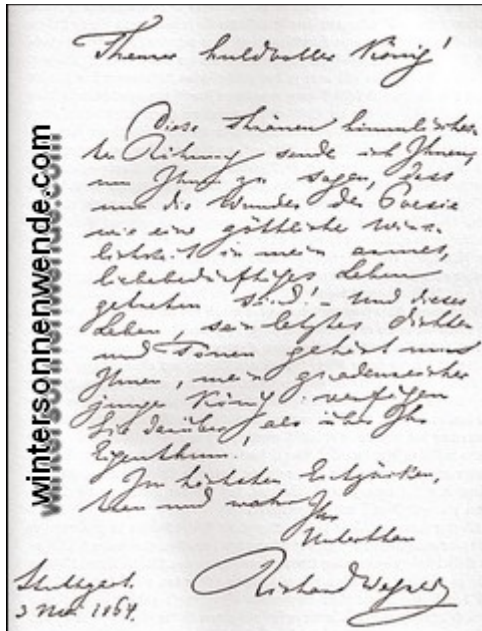 Theurer huldvoller König!
Diese Thränen himmlischer
ter Rührung sende ich Ihnen,
um Ihnen zu sagen, dass
nun die Wunder der Poesie
wie eine göttliche Wirk-
lichkeit in mein armes,
liebebedürftiges Leben
getreten sind! – Und dieses
Leben, sein letztes Dichten
und Tönen gehört nun
Ihnen, mein gnadenreicher
junger König: verfügen
Sie darüber, als über Ihr
Eigenthum!
Im höchsten Entzücken,
treu und wahr Ihr
Unterthan
Richard Wagner
Stuttgart
3 Mai 1864.
wintersonnenwende.com